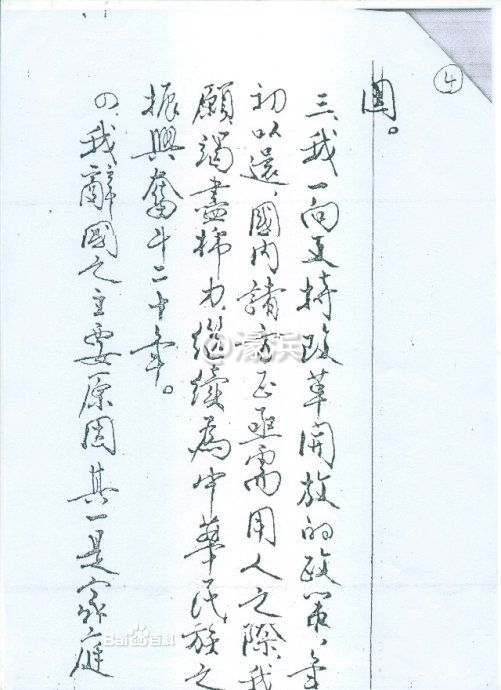 ④
三、我一向支持改革開放的政策,年
初以還,國内諸方正亟需用人之際,我
願竭盡棉力继續為中華民族之
振興奮斗二十年。
四、我辭國之主要原因其一是家庭
@濠浜
Baidu百科